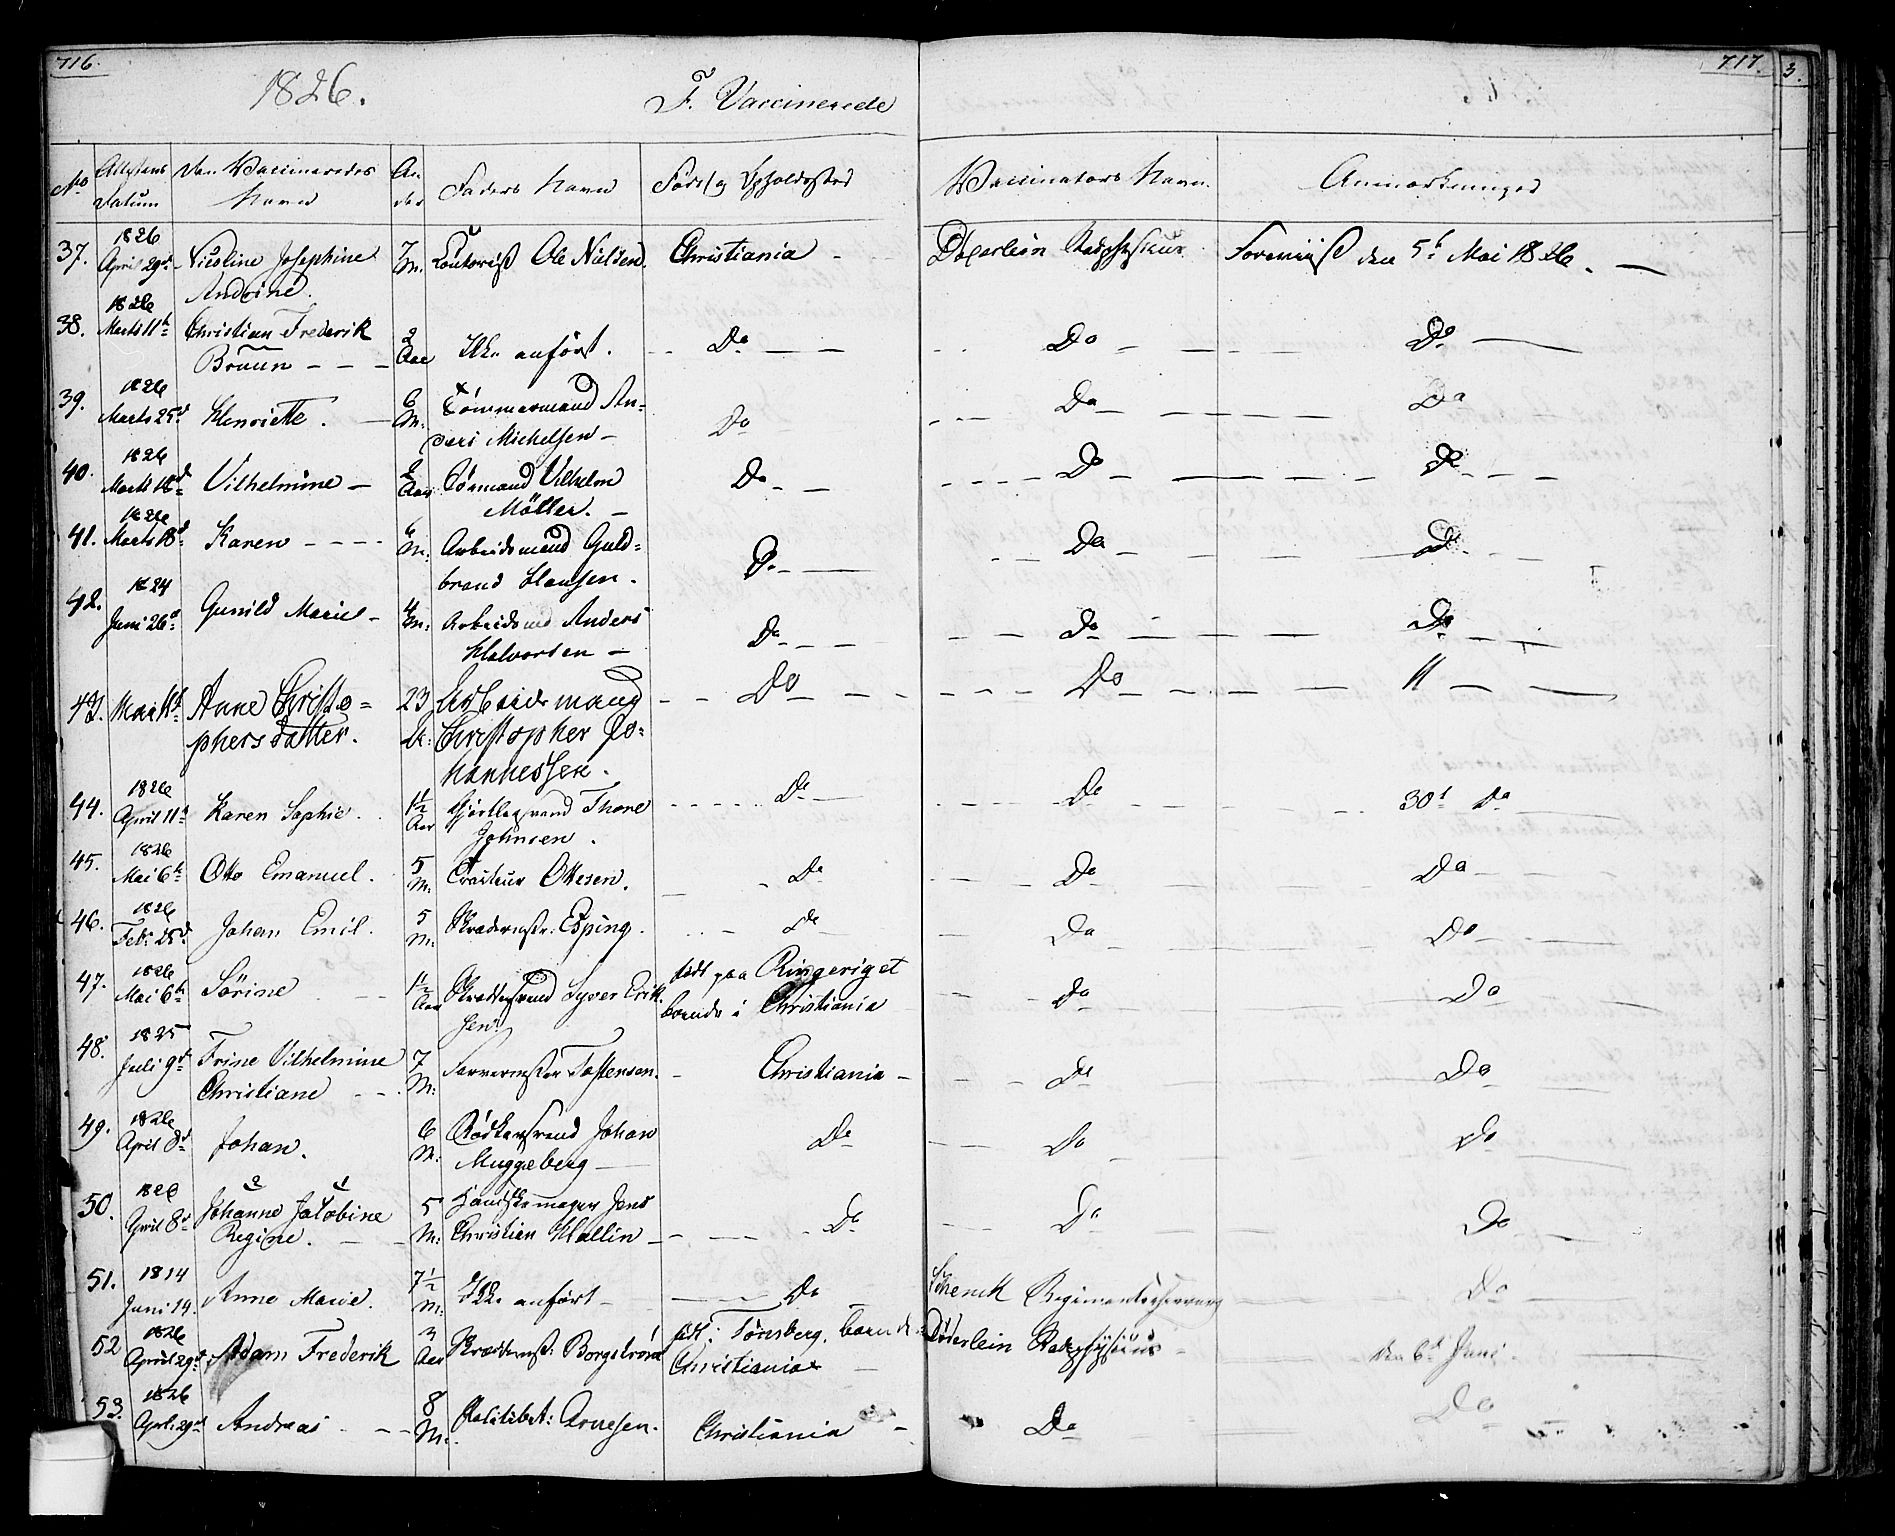 716. 717. 3.
1826. F. Vaccinerede
No Attestens Datum Den Vaccineredes Navn Al- der Faders Navn Føde/og Opholdssted Vaccinators Navn. Anmærkninger
37. 1826 April 29d Nicoline Josephine Andrine. 7 M. Contorist Ole Nielsen. Christiania Døderlein Stadsphysicus Foreviist den 5t Mai 1826.
38. 1826 Marts 11t Christian Frederik Bruun 2 Aar Ikke anført. Do Do Do
39. 1826 Marts 25d Henriette. 6 M. Tømmermand An- ders Michelsen Do Do Do
40. 1826 Marts 18d Vilhelmine 2 Aar Vilhelm Möller. Do Do Do
41. 1826 Marts 18d Karen 6 M. Arbeidsmand Guld- brand Hansen. Do Do Do
42. 1824 Juni 26d Gunild Marie 4 M. Arbeidsmd Anders Halvorsen Do Do Do
43. Anne Christo- phersdatter. 23 Arbeidsmand Christopher Jo- hannessen. Do Do "
44. 1826 April 11t Karen Sophie. 1½ Aar Thore Johnsen. Do Do 30t Do
45. 1826 Mai 6t Otto Emanuel. 5 M. Ottesen. Do Do Do
46. 1826 Febr 25d Johan Emil. 5 M. Skrædermstr. Esping. Do Do Do
47. 1826 Mai 6t Sörine 1½ Aar Skræddersvend Syver Erik- sen. født paa Ringeriget boende i Christiania Do Do
48. 1825 Juli 9d Trine Vilhelmine Christiane 7 M. Farvermester Tostensen. Christiania Do Do
49. 1826 April 8d Johan. 6 M. Bødkersvend Johan Muggeberg Do Do Do
50. 1826 April 8d Johanne Jacobine Regine. 5 M. Handskemager Jens Christian Hallin Do Do Do
51. 1814 Juni 19. Anne Marie. 7½ M. Ikke anført Do Schenck Regimentschirurg Do
52 1826 April 29d Adam Frederik 3 Aar Skrædermst: Borgström født i Tönsberg. boende i Christiania Döderlein Stadsphysicus den 6t Juni
53. 1826 April 29d Andreas 8 M. Politibet: Arnesen. Christiania Do Do